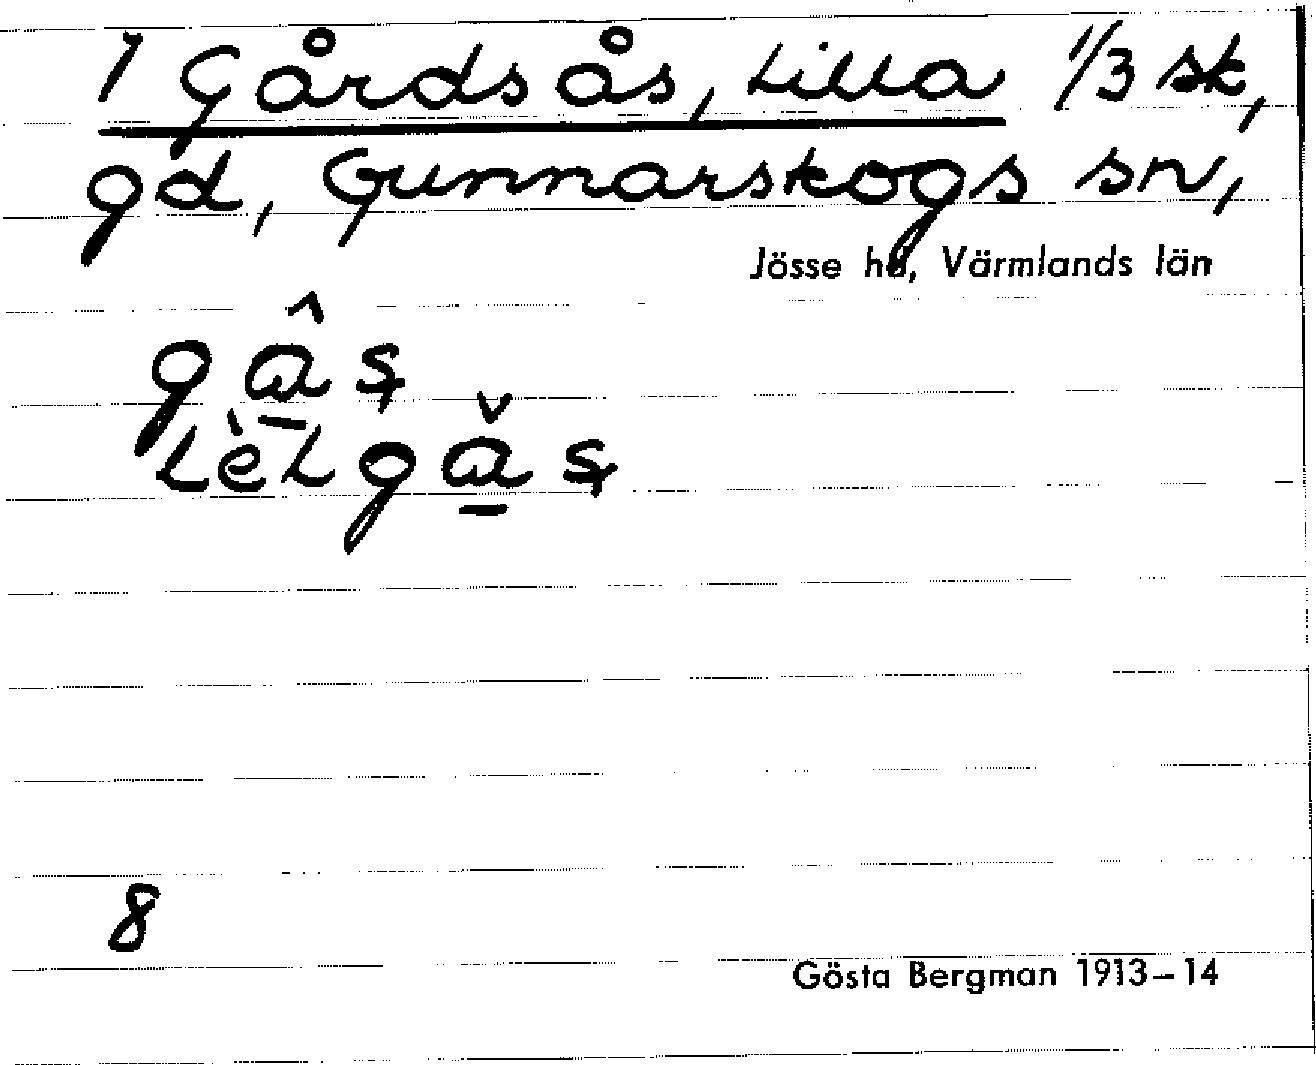 1 Gårdsås, Lilla 1/3 sk,
gd, Gunnarskogs sn,
Jösse hd, Värmlands län
8
Gösta Bergman 1913–14